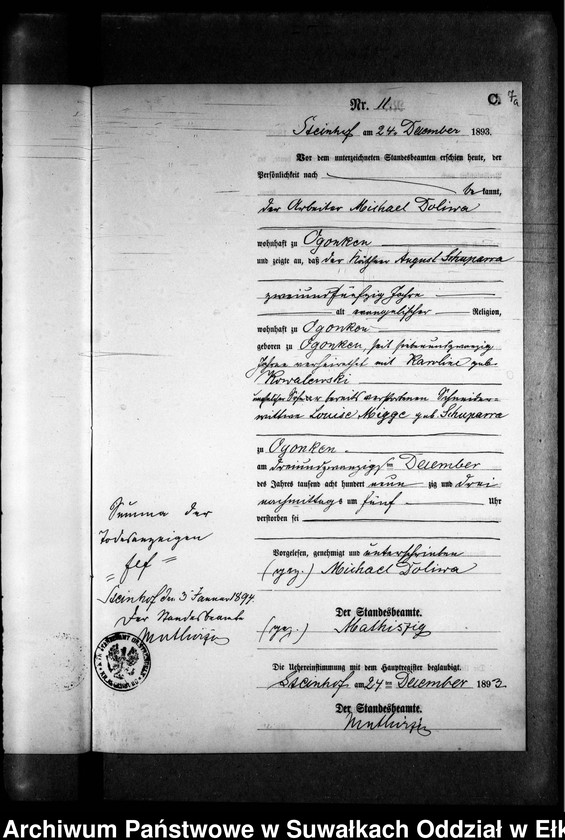 C.
7a
Nr. 11.
Steinhof am 24. Dezember 1893.
Vor dem unterzeichneten Standesbeamten erschien heute, der
Persönlichkeit nach
be kannt,
der Arbeiter Michael Doliwa
wohnhaft zu Ogonken
und zeigte an, daß der Käthner August Schuparra
zweiundfünfzig Jahre
alt evangelischer Religion,
wohnhaft zu Ogonken
geboren zu Ogonken, seit siebenundzwanzig
Jahren verheirathet mit Karoline geb.
Kowalewski
unehelicher Sohn der bereits verstorbenen Schneider-
wittwe Louise Migge geb. Schuparra
zu Ogonken
am dreiundzwanzigsten Dezember
des Jahres tausend acht hundert neun zig und drei
nachmittags um fünf Uhr
verstorben sei
Vorgelesen, genehmigt und unterschrieben
(gez.) Michael Doliwa
Der Standesbeamte.
(gez.) Mathiszig
Die Uebereinstimmung mit dem Hauptregister beglaubigt.
Steinhof am 24ten Dezember 1893
Der Standesbeamte.
Mathiszig
Summa der
Todesanzeigen
"elf"
Steinhof den 3 Januar 1894
Der Standesbeamte
Mathiszig
Archiwum Państwowe w Suwałkach Oddział w Ełk